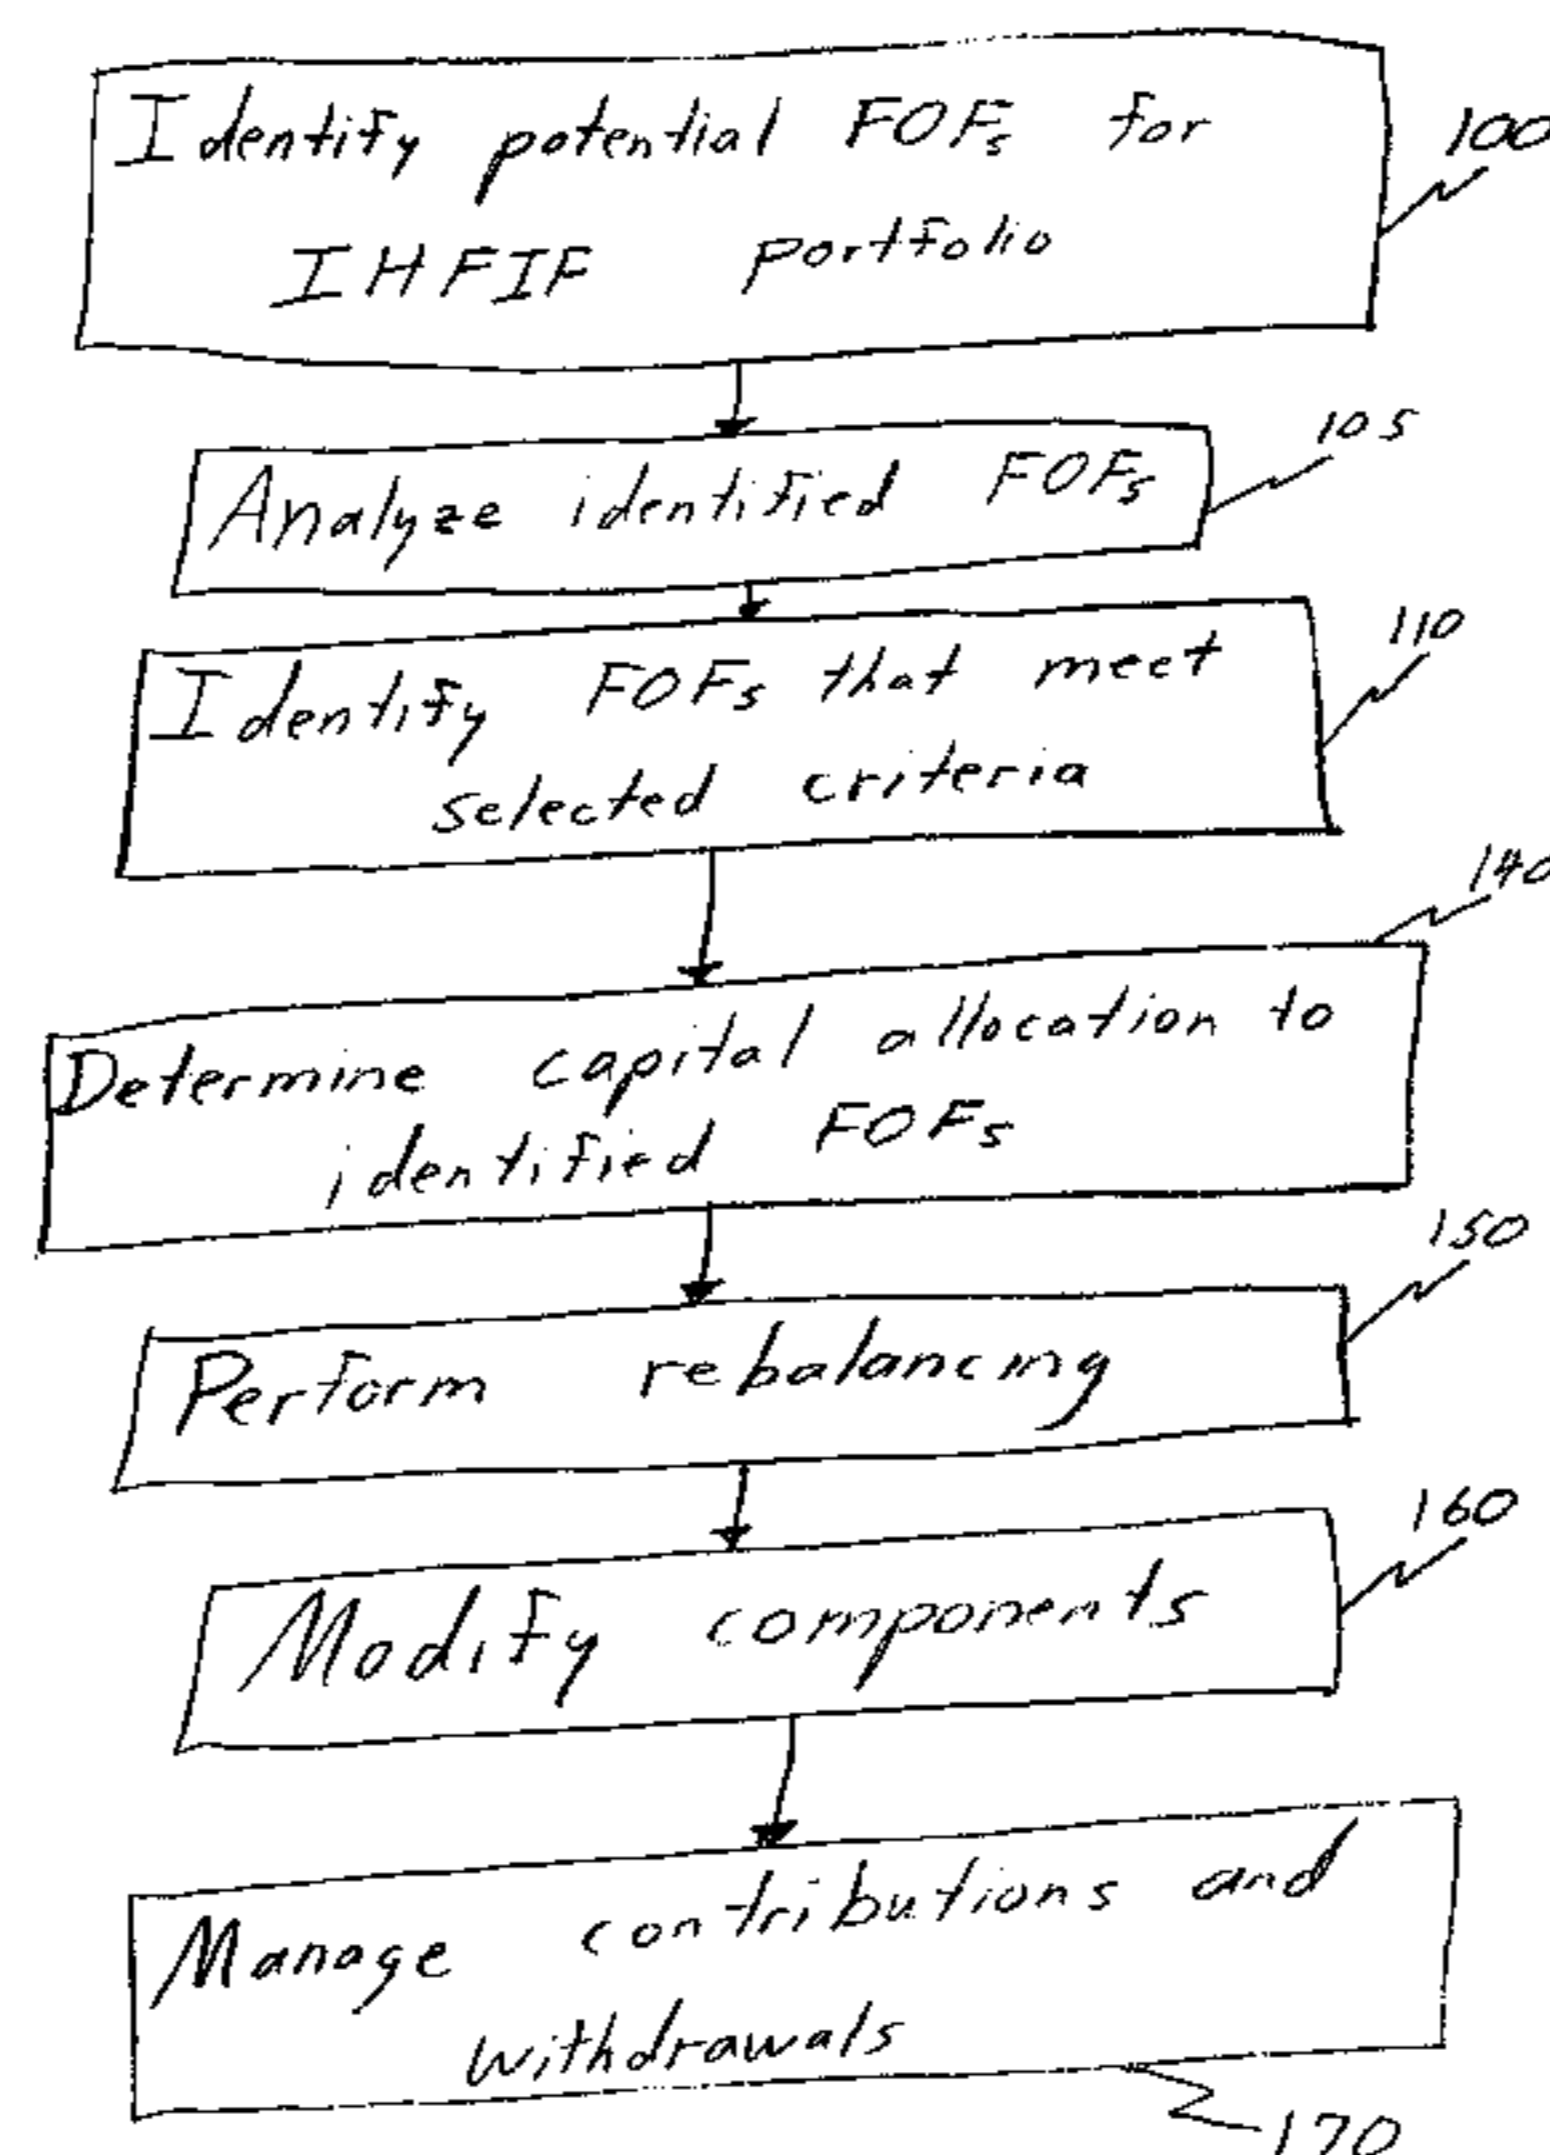 Identify potential FOFs for
IHFIF portfolio
100
Analyze identified FOFs
105
Identify FOFs that meet
selected criteria
110
140
Determine capital allocation to
identified FOFs
150
Perform rebalancing
160
Modify components
Manage contributions and
withdrawals
170